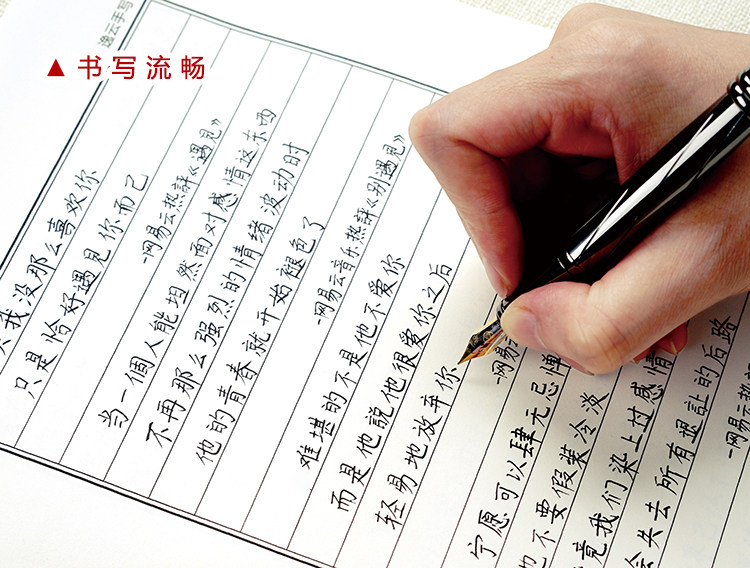 ▲ 书写流畅
逸云手写
我没那么喜欢你
只是恰好遇见你而已
-网易云热評《遇见》
当一個人能坦然面对感情这东西
不再那么强烈的情绪波动时
他的青春就开始褪色了
-网易云音乐热評《别遇见》
难堪的不是他不爱你
而是他説他很爱你之后
轻易地放弃你
-网易云
宁愿可以肆无忌惮
也不要假装冷淡
竟我们染上过感情
会失去所有退让的后路
-网易云热